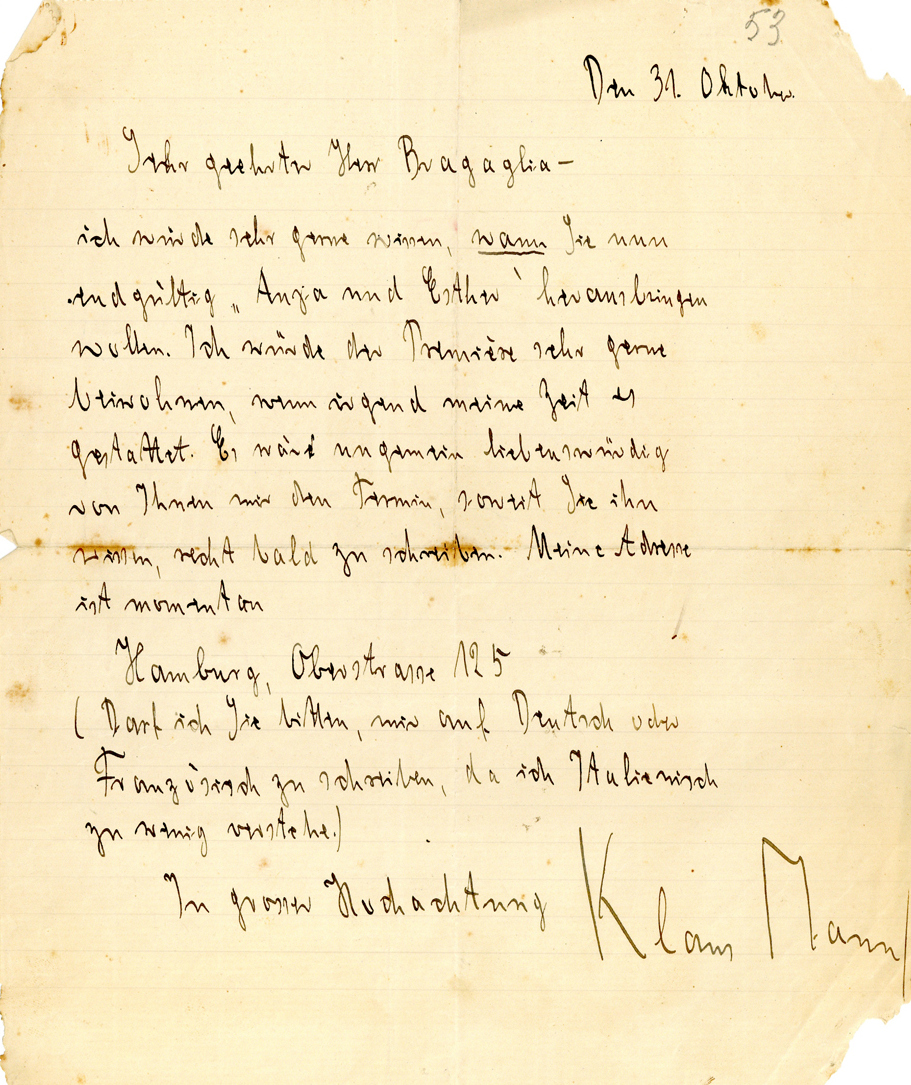 53
Den 31. Oktober.
Sehr geehrter Herr Bragaglia –
ich würde sehr gerne wissen, wann Sie nun
endgültig „Anja und Esther‟ herausbringen
wollen. Ich würde der Première sehr gerne
beiwohnen, wenn irgend meine Zeit es
gestattet. Es wäre ungemein liebenswürdig
von Ihnen mir den Termin, soweit Sie ihn
wissen, recht bald zu schreiben. Meine Adresse
ist momentan
Hamburg, Oberstrasse 125
(Darf ich Sie bitten, mir auf Deutsch oder
Französisch zu schreiben, da ich Italienisch
zu wenig verstehe.)
In grosser Hochachtung Klaus Mann